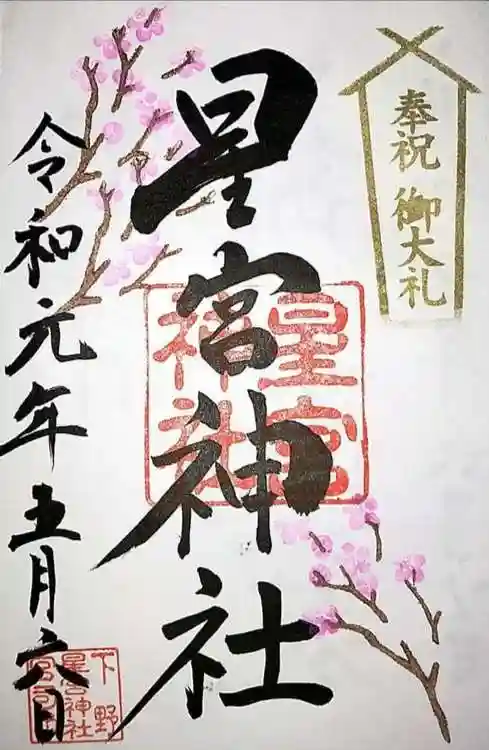 奉祝 御大礼
星宮神社
星宮
神社
令和元年五月六日
下野
星宮神社